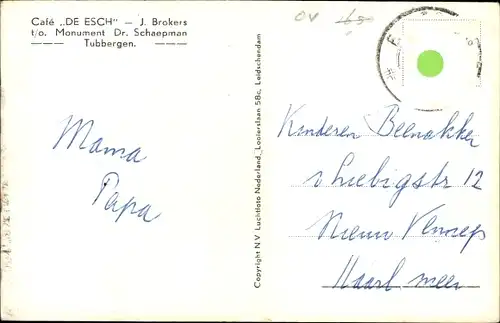 Café „DE ESCH" — J. Brokers
t/o. Monument Dr. Schaepman
Tubbergen.
Mama
Papa
Copyright N.V. Luchtfoto Nederland, Looierslaan 58c, Leidschendam
OV
Kinderen Beenakker
12
Nieuw Vennep
Haarl. meer